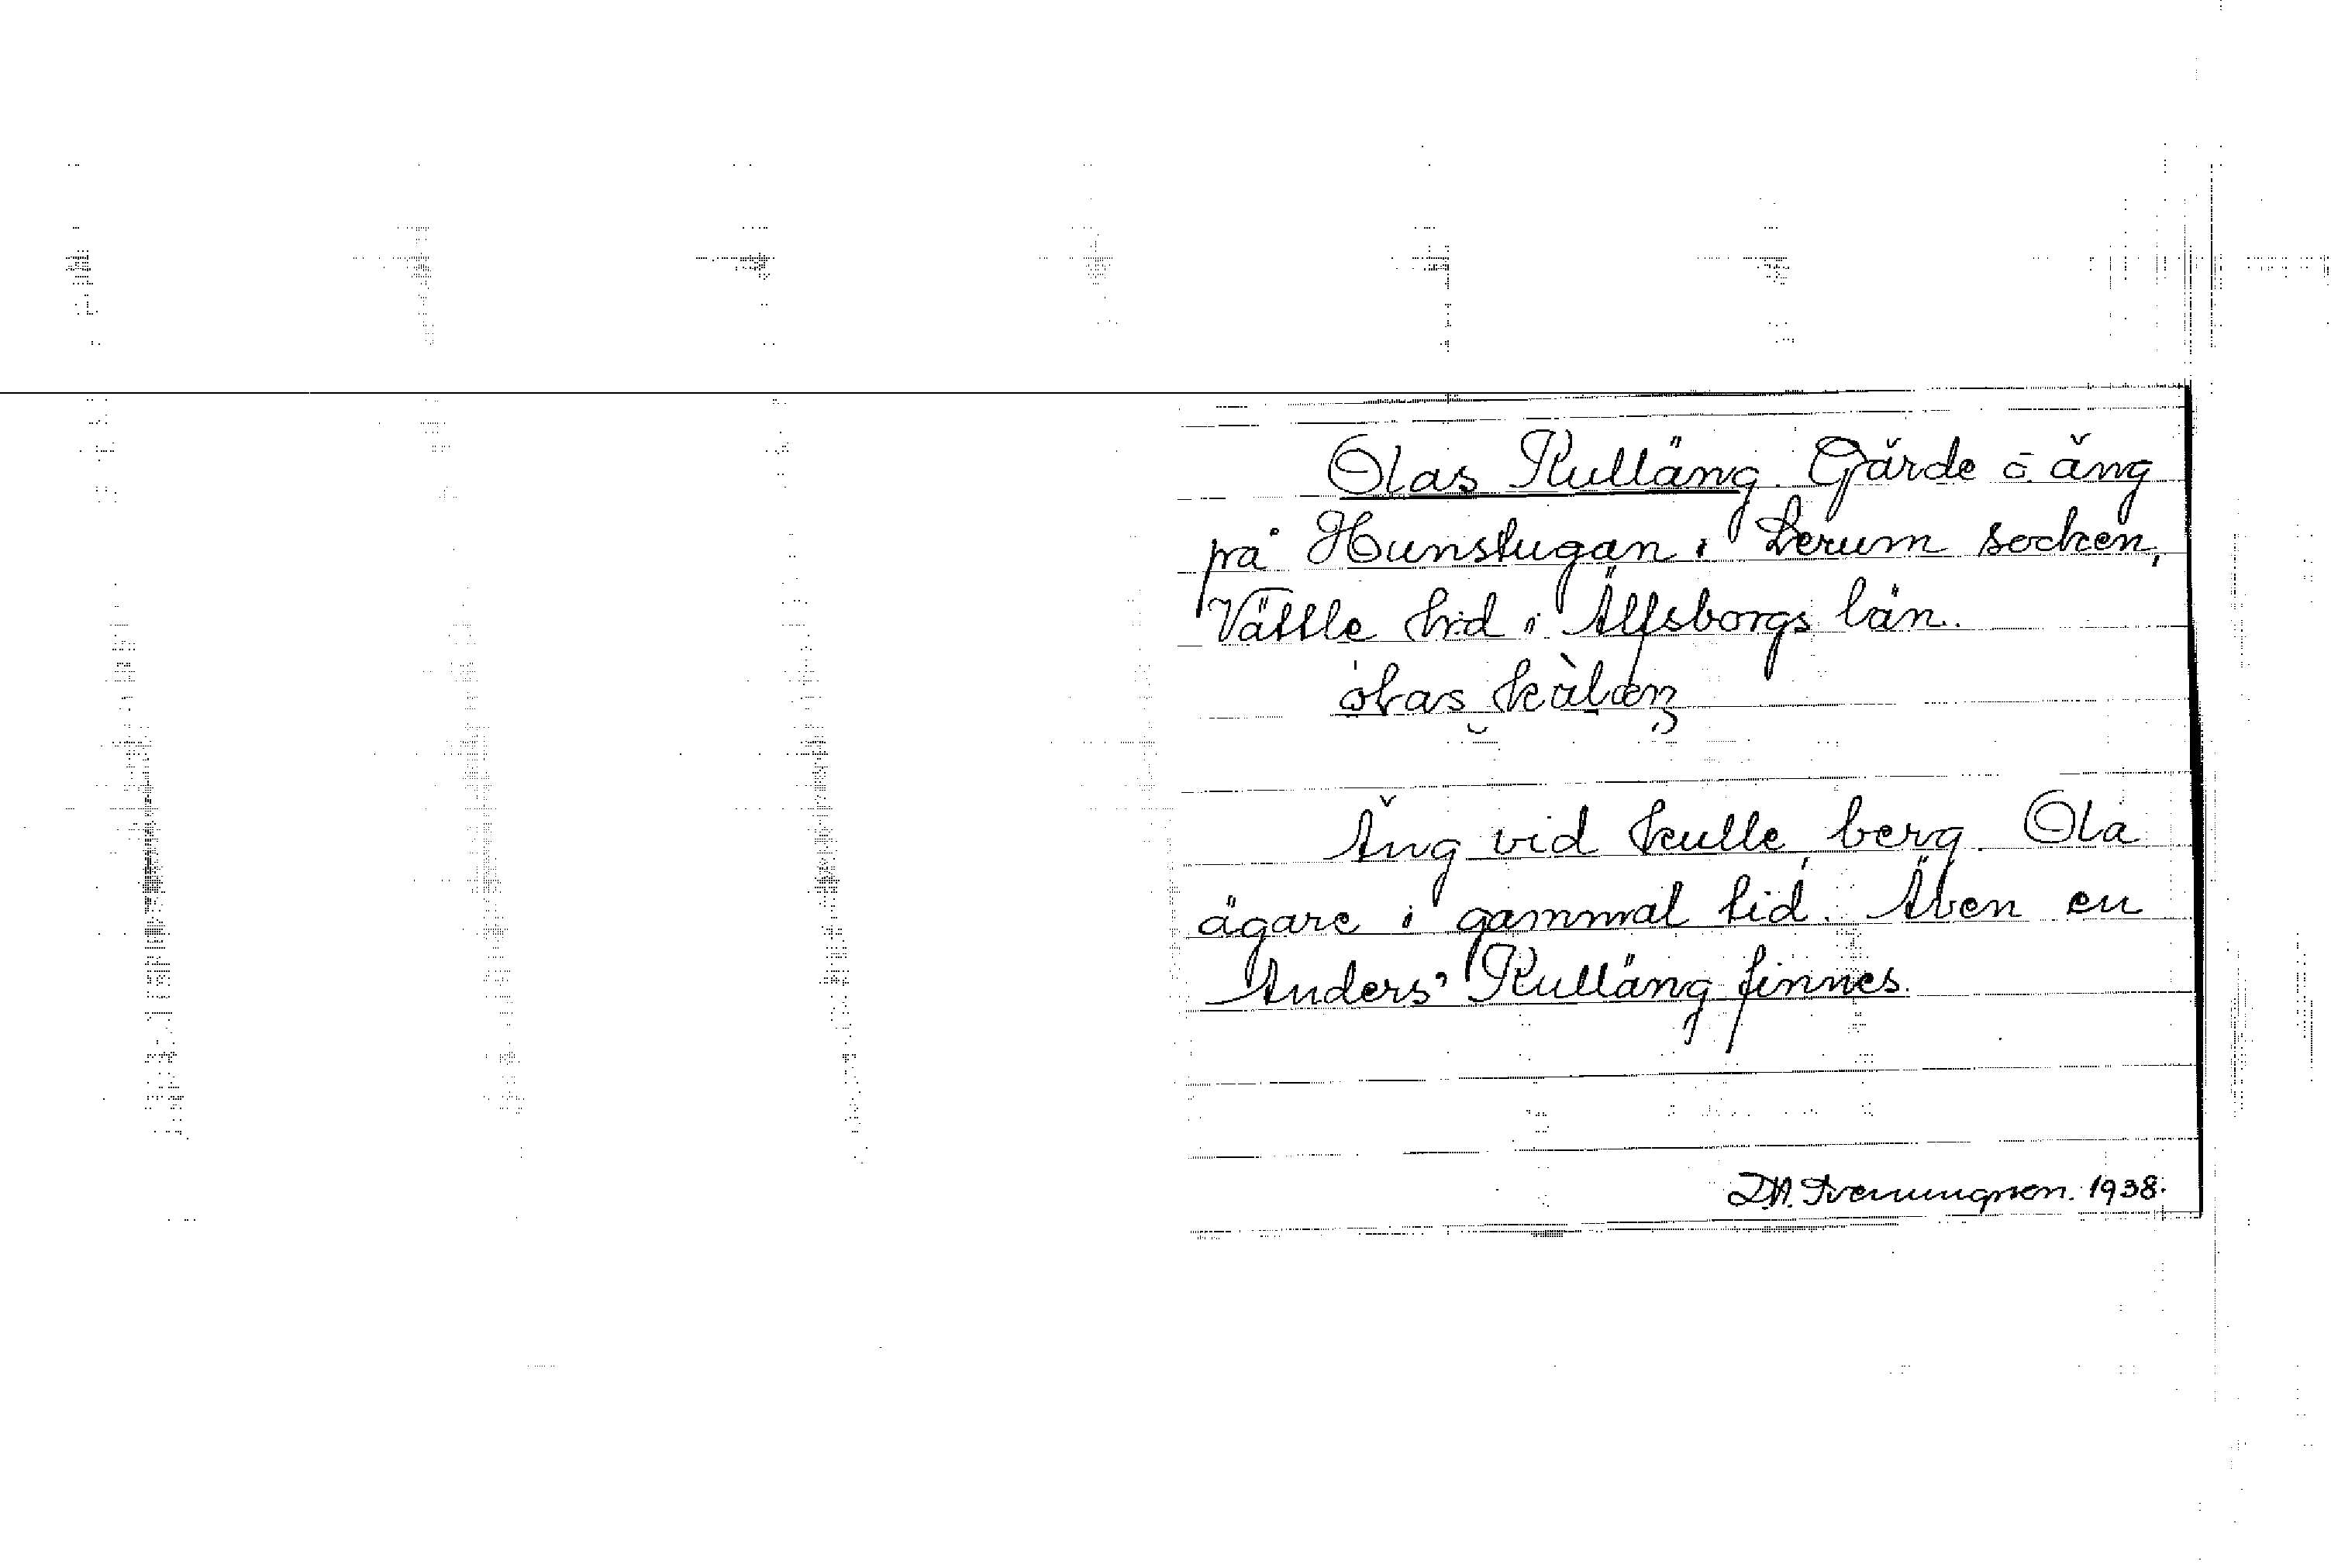 Olas Kulläng. Gärde o. äng
på Hunstugan i Lerum socken,
Vättle hrd i Älfsborgs län.
Äng vid kulle, berg. Ola
ägare i gammal tid. Även en
Anders' Kulläng finnes.
1938.